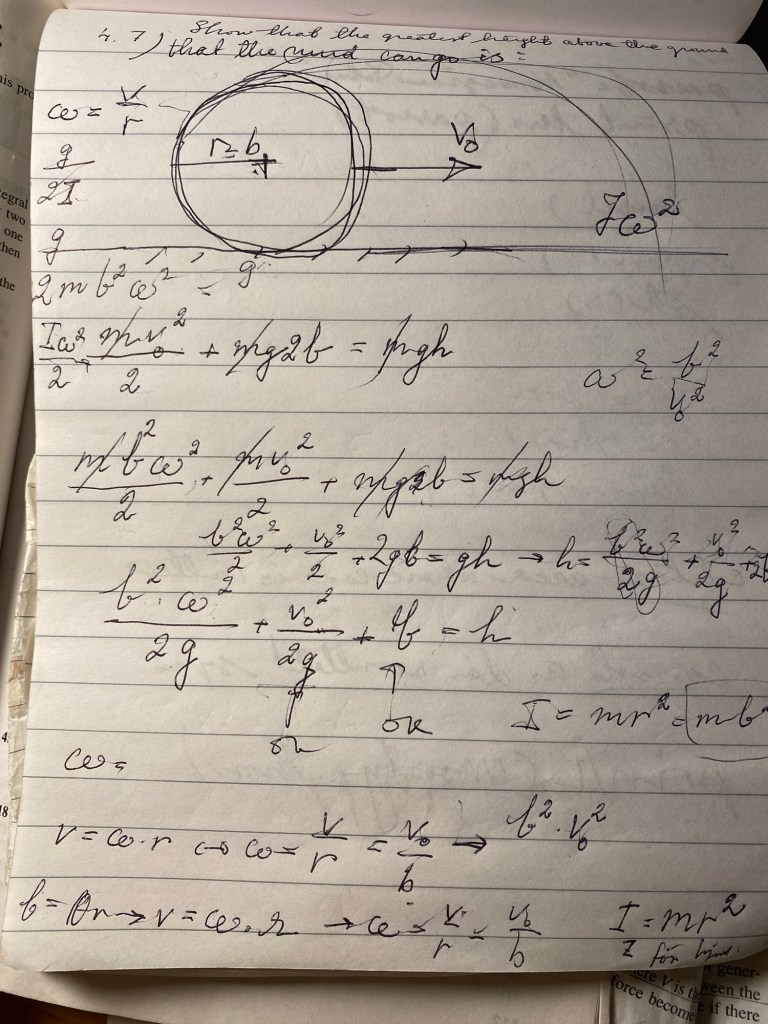 4.7) Show that the greatest height above the ground
that the mud can go is:
ω = v/r
r = b
V₀
g/2I
Iω²
g
g
2mb²ω² =
Iω²/2 mv₀²/2 + mg2b = mgh
ω² = b²/v₀²
mb²ω²/2 + mv₀²/2 + mg2b = mgh
b²ω²/2 + v₀²/2 + 2gb = gh → h = b²ω²/2g + v₀²/2g + 2b
b²·ω²/2g + v₀²/2g + b = h
ok
ok
I = mr² = mb²
ω =
v = ω·r ↔ ω = v/r = v₀/b → b²·v₀²
b = θr → v = ω·r → ω = v/r = v₀/b
I = mr²
för
his pro
egral
two
one
then
the
4.
18
V is
gener-
ween the
force become
e if there